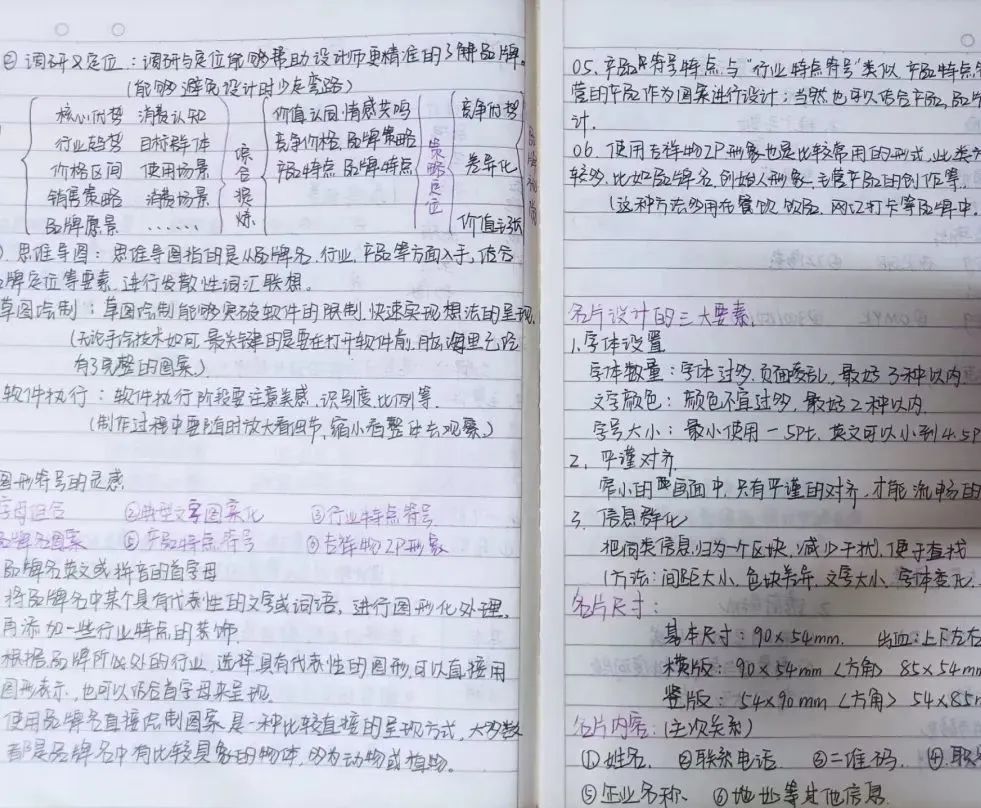 ② 调研及定位：调研与定位能够帮助设计师更精准的了解品牌。
(能够避免设计时少走弯路)
核心优势 消费认知
行业趋势 目标群体
价格区间 使用场景
销售策略 消费场景
品牌愿景 ……
综合提炼
价值认同 情感共鸣
竞争价格 品牌策略
产品特点 品牌特点
策略定位
竞争优势
差异化
价值主张
思维导图：思维导图指的是从品牌名、行业、产品等方面入手，结合
牌定位等要素，进行发散性词汇联想。
草图绘制：草图绘制能够突破软件的限制，快速实现想法的呈现。
(无论手绘技术如何，最关键的是要在打开软件前，脑海里已经
有了完整的图案)
软件执行：软件执行阶段要注意美感、识别度、比例等。
(制作过程中要随时放大看细节，缩小看整体去观察)
图形符号的灵感
字母组合 ②典型文字图案化 ③行业特点符号
品牌名图案 ⑤产品特点符号 ⑥吉祥物IP形象
品牌名英文或拼音的首字母
将品牌名中某个具有代表性的文字或词语，进行图形化处理，
再添加一些行业特点的装饰。
根据品牌所处的行业，选择具有代表性的图形，可以直接用
图形表示，也可以结合首字母来呈现。
使用品牌名直接绘制图案是一种比较直接的呈现方式，大多数
都是品牌名中有比较具象的物体，多为动物或植物。
05. 产品特点符号与"行业特点符号"类似，产品特点
营的产品作为图案进行设计；当然也可以结合产品，品
计.
06. 使用吉祥物IP形象也是比较常用的形式，此类
较多，比如品牌名、创始人形象、主营产品的创作等。
(这种方法多用在餐饮、饮品、网红打卡等品牌中。
名片设计的三大要素.
1.字体设置
字体数量：字体过多，页面凌乱，最好3种以内.
文字颜色：颜色不宜过多，最好2种以内.
字号大小：最小使用一5pt，英文可以小到4.5p
2. 严谨对齐.
窄小的画面中，只有严谨的对齐，才能流畅的
3. 信息群化
把同类信息，归为一个区块，减少干扰，便于查找
(方法：间距大小、色块差异、文字大小、字体变化.
名片尺寸：
基本尺寸：90×54mm. 出血：上下左右
横版：90×54mm (方角) 85×54mm
竖版：54×90mm (方角) 54×85
名片内容：(主次关系)
①姓名. ②联系电话 ③二维码. ④.职
⑤企业名称. ⑥地址等其他信息.